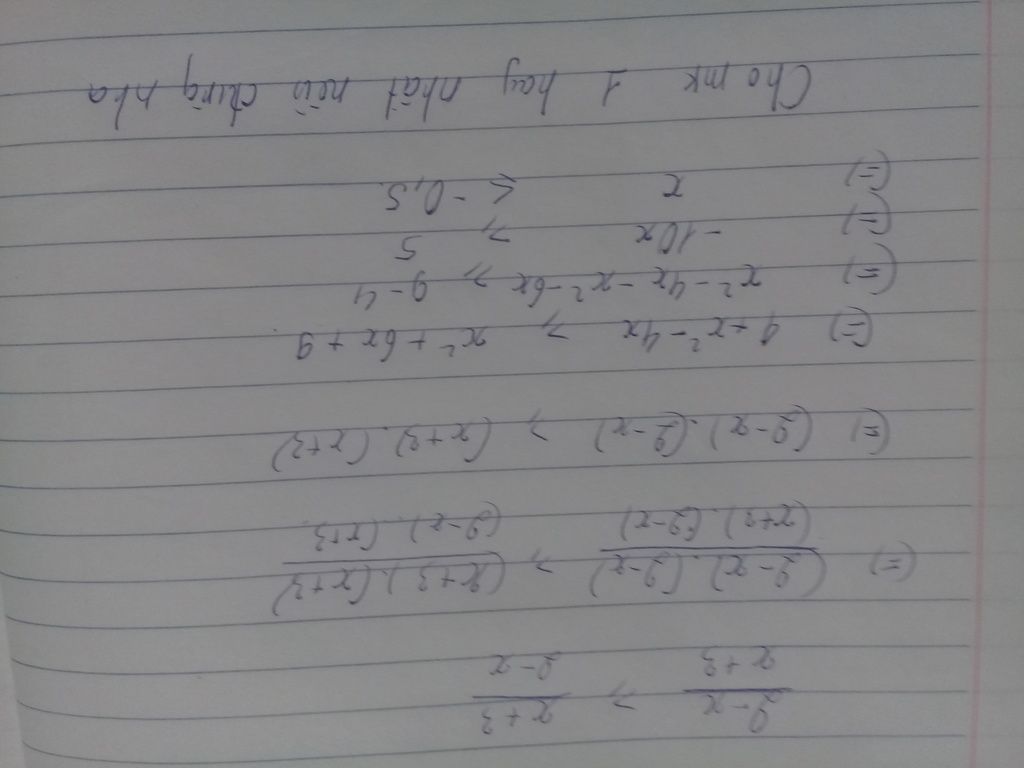 2-x / x+3 > x+3 / 2-x
(=) (2-x).(2-x) / (x+3).(2-x) > (x+3).(x+3) / (2-x).(x+3
(=) (2-x).(2-x) > (x+3).(x+3)
(=) 4+x²-4x > x²+6x+9
(=) x²-4x-x²-6x > 9-4
(=) -10x > 5
(=) x ≤ -0,5.
Cho mk 1 hay nhất nếu đúng nha